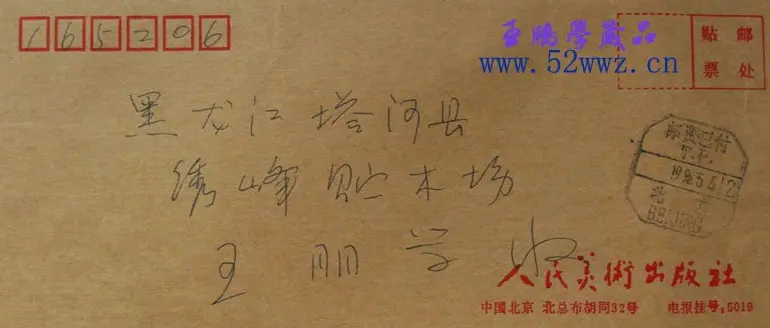 165206
王鹏學藏品
www.52wwz.cn
贴 邮
票 处
黑龙江塔河县
绣峰贮木场
王朋学收
邮资已付
北京
BEIJING
人民美術出版社
中国北京 北总布胡同32号 电报挂号:5019